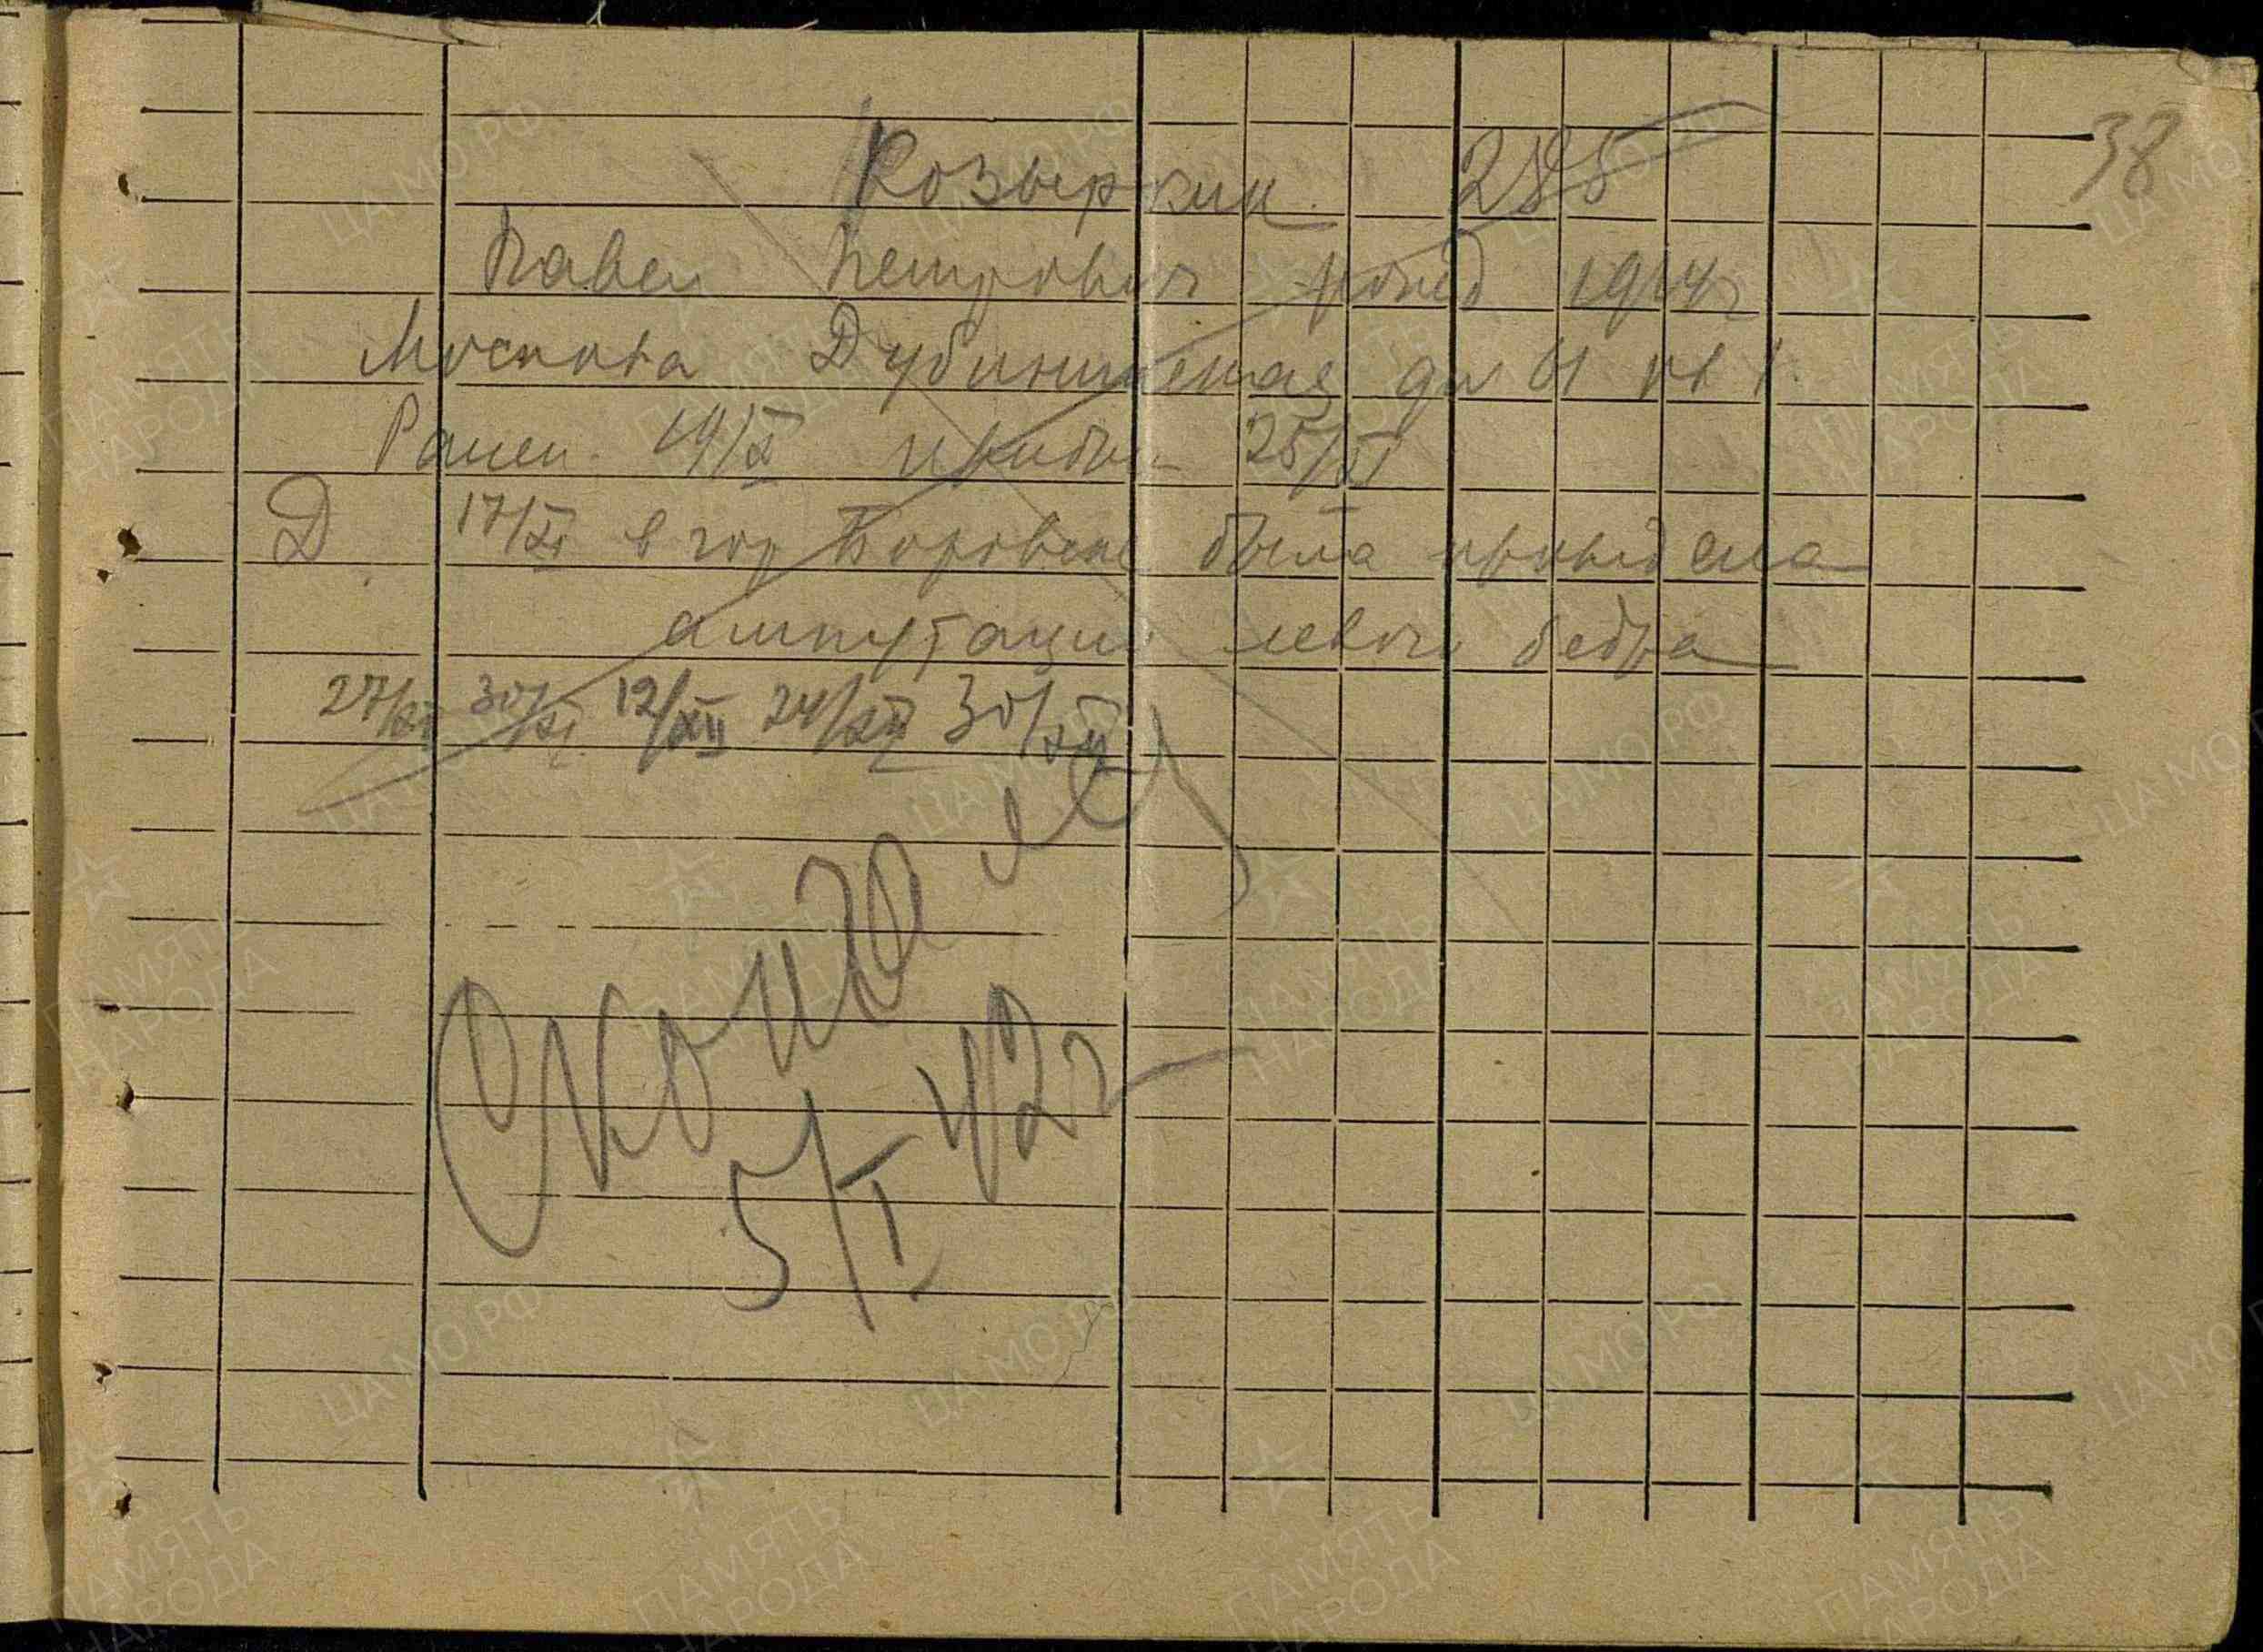 38
Козыркин 285
Павел Петрович рожд 1914г
Москва Дубининская дм 61 кв 1
Ранен 19/X прибыл 25/XI
Д 17/XI в гор Боровске была произведена
ампутация левого бедра
27/XI 30/XI 12/XII 24/XII 30/XII
Скончался
5/I 42г